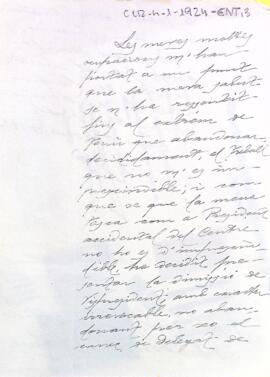 CUB-4-1-1924-ENT,3
Les meves moltes
ocupacions m'han
portat a un punt
que la meva salut
se n'ha ressentit
fins al extrem de
tenir que abandonar,
decididament, el treball
que no m'es
imprescindible; i com
que se que la meva
tasca com a President
accidental del Centre
no ho es d'imprescin
dible, he decidit pre
sentar la dimissió de
Vispresident, amb caracter
irrevocable, no aban
donant per xo el
carrec de delegat de